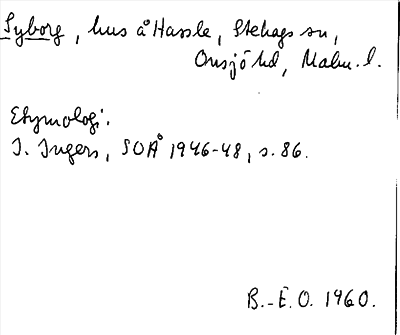 Syborg, hus å Hassle, Stehags sn,
Onsjö hd, Malm. l.
Etymologi.
I. Ingers, SOÅ 1946-48, s. 86.
B.-E.O. 1960.